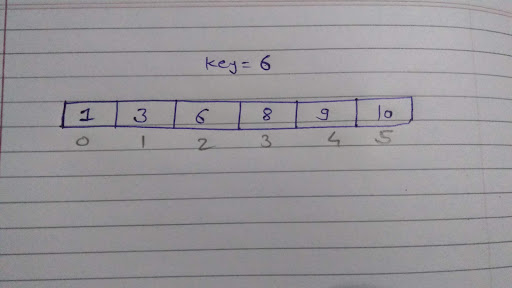 key = 6
1 3 6 8 9 10
0 1 2 3 4 5